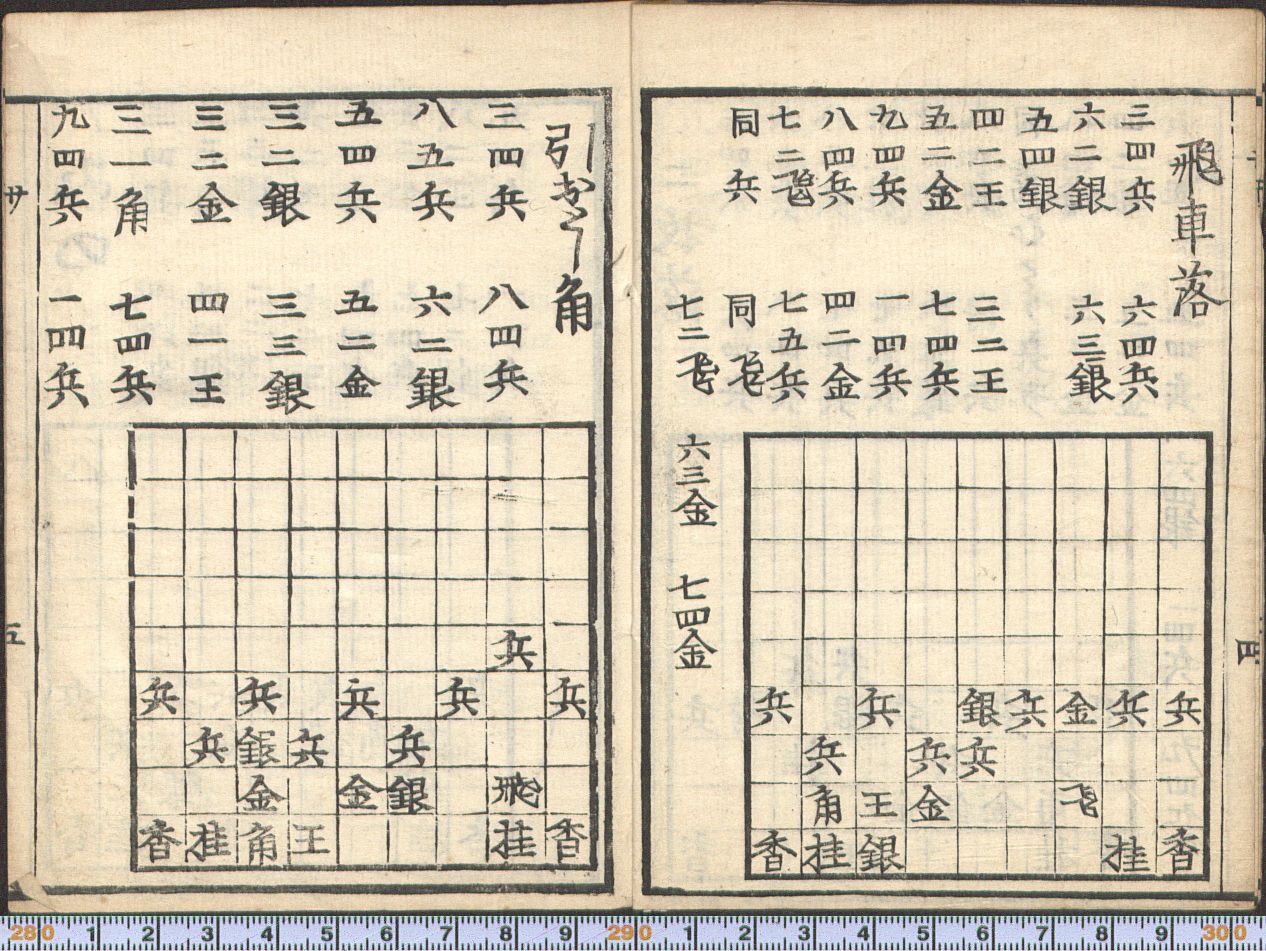 飛車落
三四兵 六四兵
六二銀 六三銀
五四銀
四二王 三二王
五二金 七四兵
九四兵 一四兵
八四兵 四二金
七二飛 七五兵
同兵 同飛
七二飛 六三金 七四金
兵 兵 銀 兵 金 兵 兵
兵 兵 兵
角 王 金 飛
香 桂 銀 桂 香
四
引 角
三四兵 八四兵
八五兵 六二銀
五四兵 五二金
三二銀 三三銀
三二金 四一王
三一角 七四兵
九四兵 一四兵
兵
兵 兵 兵 兵 兵
兵 銀 兵 兵
金 金 銀 飛
香 桂 角 王 桂 香
サ
五
280 1 2 3 4 5 6 7 8 9 290 1 2 3 4 5 6 7 8 9 300